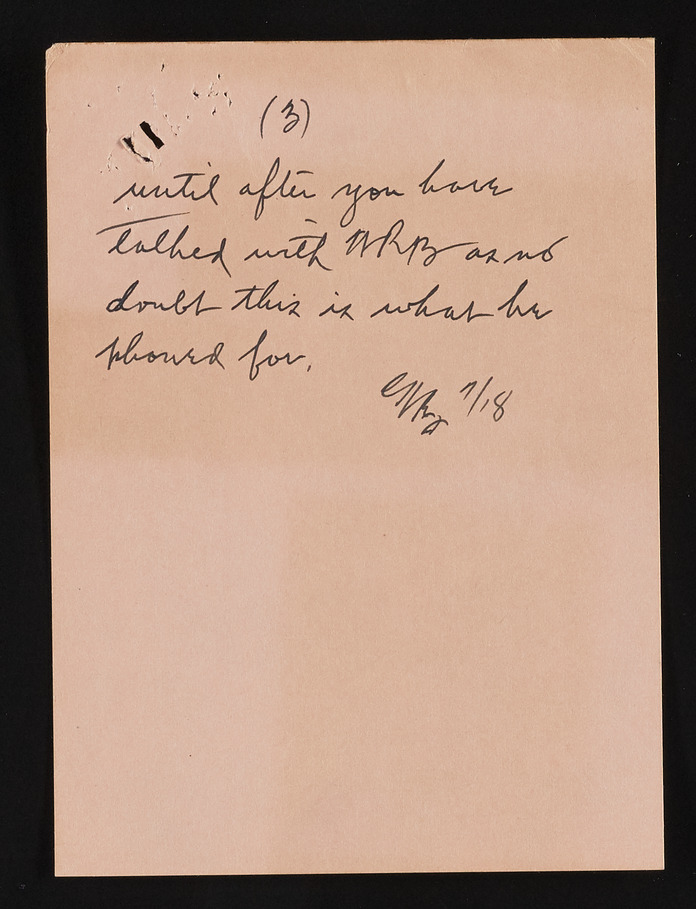 (3)
until after you have
talked with WRB as no
doubt this is what he
phoned for.
7/18